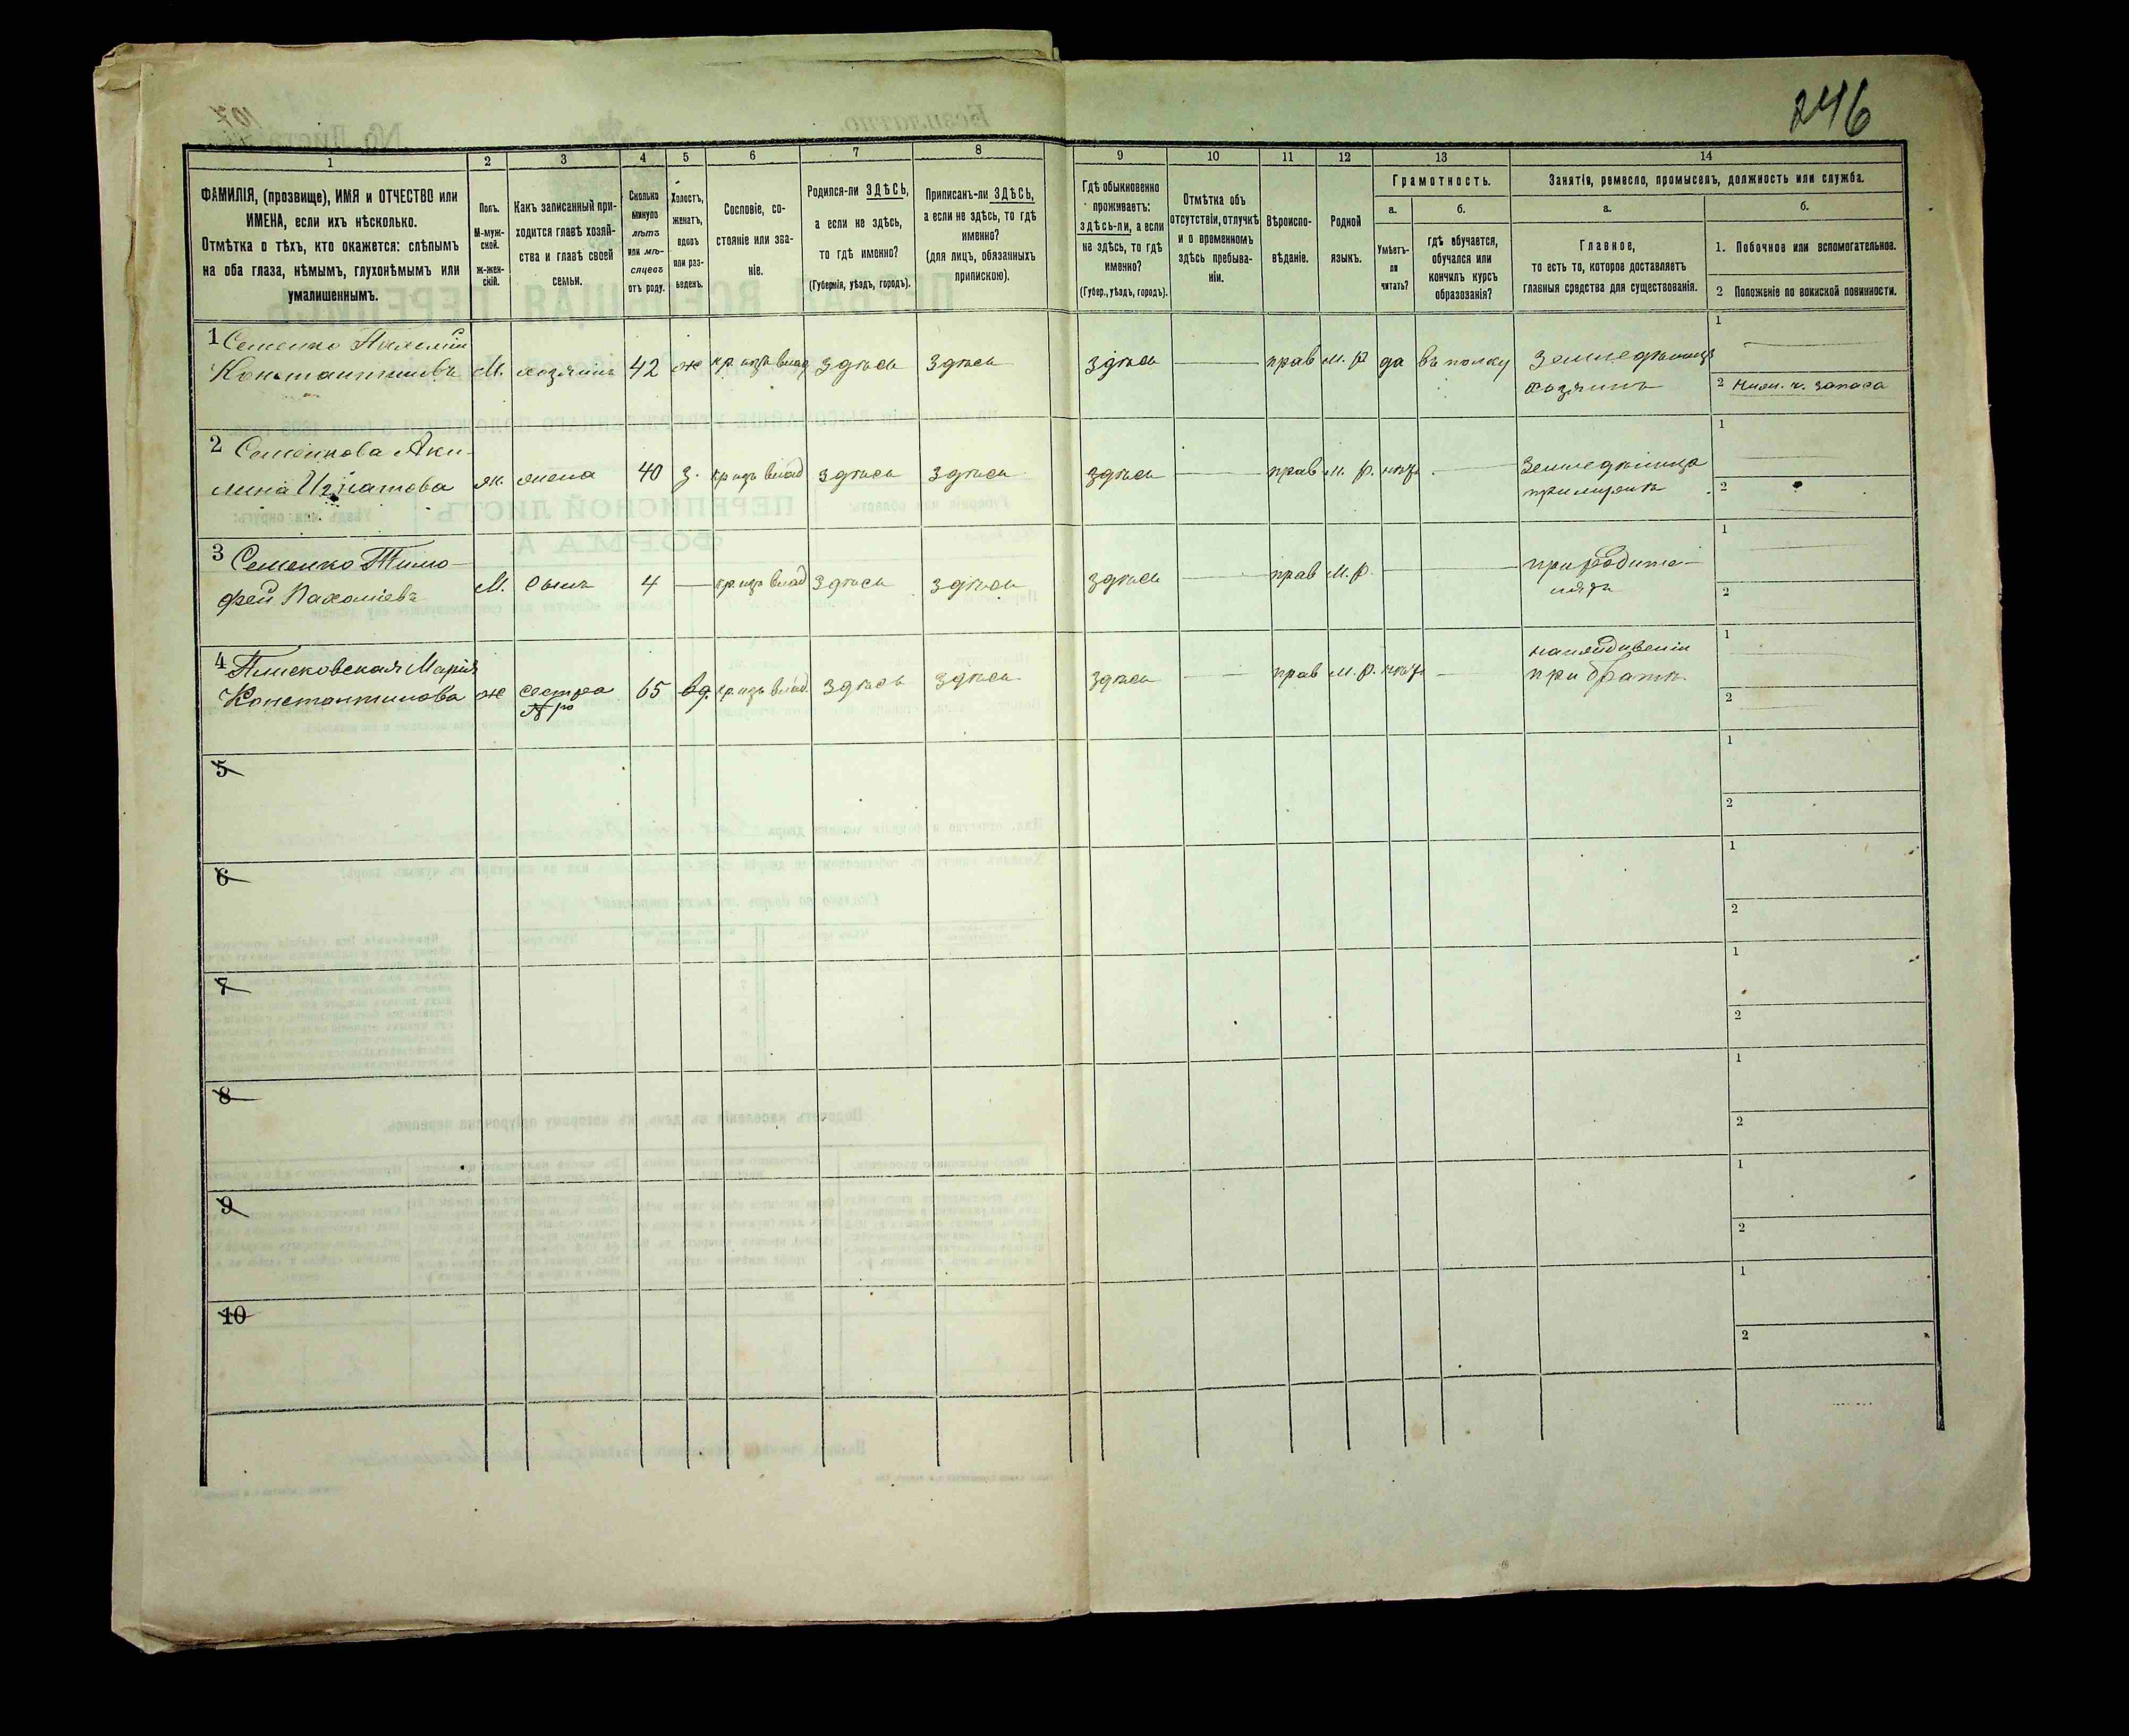 246
1 2 3 4 5 6 7 8 9 10 11 12 13 14
ФАМИЛІЯ, (прозвище), ИМЯ и ОТЧЕСТВО или
ИМЕНА, если ихъ нѣсколько.
Отмѣтка о тѣхъ, кто окажется: слѣпымъ
на оба глаза, нѣмымъ, глухонѣмымъ или
умалишеннымъ.
Полъ.
М-муж-
ской.
ж-жен-
скій.
Какъ записанный при-
ходится главѣ хозяй-
ства и главѣ своей
семьи.
Сколько
минуло
лѣтъ
или мѣ-
сяцевъ
отъ роду.
Холостъ,
женатъ,
вдовъ
или раз-
веденъ.
Сословіе, со-
стояніе или зва-
ніе.
Родился-ли ЗДѢСЬ,
а если не здѣсь,
то гдѣ именно?
(Губернія, уѣздъ, городъ).
Приписанъ-ли ЗДѢСЬ,
а если не здѣсь, то гдѣ
именно?
(для лицъ, обязанныхъ
припискою).
Гдѣ обыкновенно
проживаетъ:
здѣсь-ли, а если
не здѣсь, то гдѣ
именно?
(Губер., уѣздъ, городъ).
Отмѣтка объ
отсутствіи, отлучкѣ
и о временномъ
здѣсь пребыва-
ніи.
Вѣроиспо-
вѣданіе.
Родной
языкъ.
Грамотность.
а.
Умѣетъ-
ли
читать?
б.
гдѣ обучается,
обучался или
кончилъ курсъ
образованія?
Занятія, ремесло, промыселъ, должность или служба.
а.
Главное,
то есть то, которое доставляетъ
главныя средства для существованія.
б.
1. Побочное или вспомогательное.
2 Положеніе по воинской повинности.
1 Семенко Пахомій
Константиновъ М. хозяинъ 42 ж кр. изъ влад здѣсь здѣсь здѣсь — прав м. р да въ полку Земледѣлецъ
хозяинъ
1
2 Нижн. ч. запаса
2 Семенкова Аки-
лина Игнатова ж. жена 40 з. кр изъ влад здѣсь здѣсь здѣсь — прав м. р. нѣтъ — Земледѣлица
при мужѣ
1
2
3 Семенко Тимо-
фей Пахоміевъ М. сынъ 4 — кр изъ влад здѣсь здѣсь здѣсь — прав М. р. — при родите-
ляхъ
1
2
4 Плисковская Марія
Константинова ж сестра 65 вд. кр. изъ влад. здѣсь здѣсь здѣсь — прав м. р. нѣтъ — на иждивеніи
при братѣ
1
2
5
1
2
6
1
2
7
1
2
8
1
2
9
1
2
10
1
2